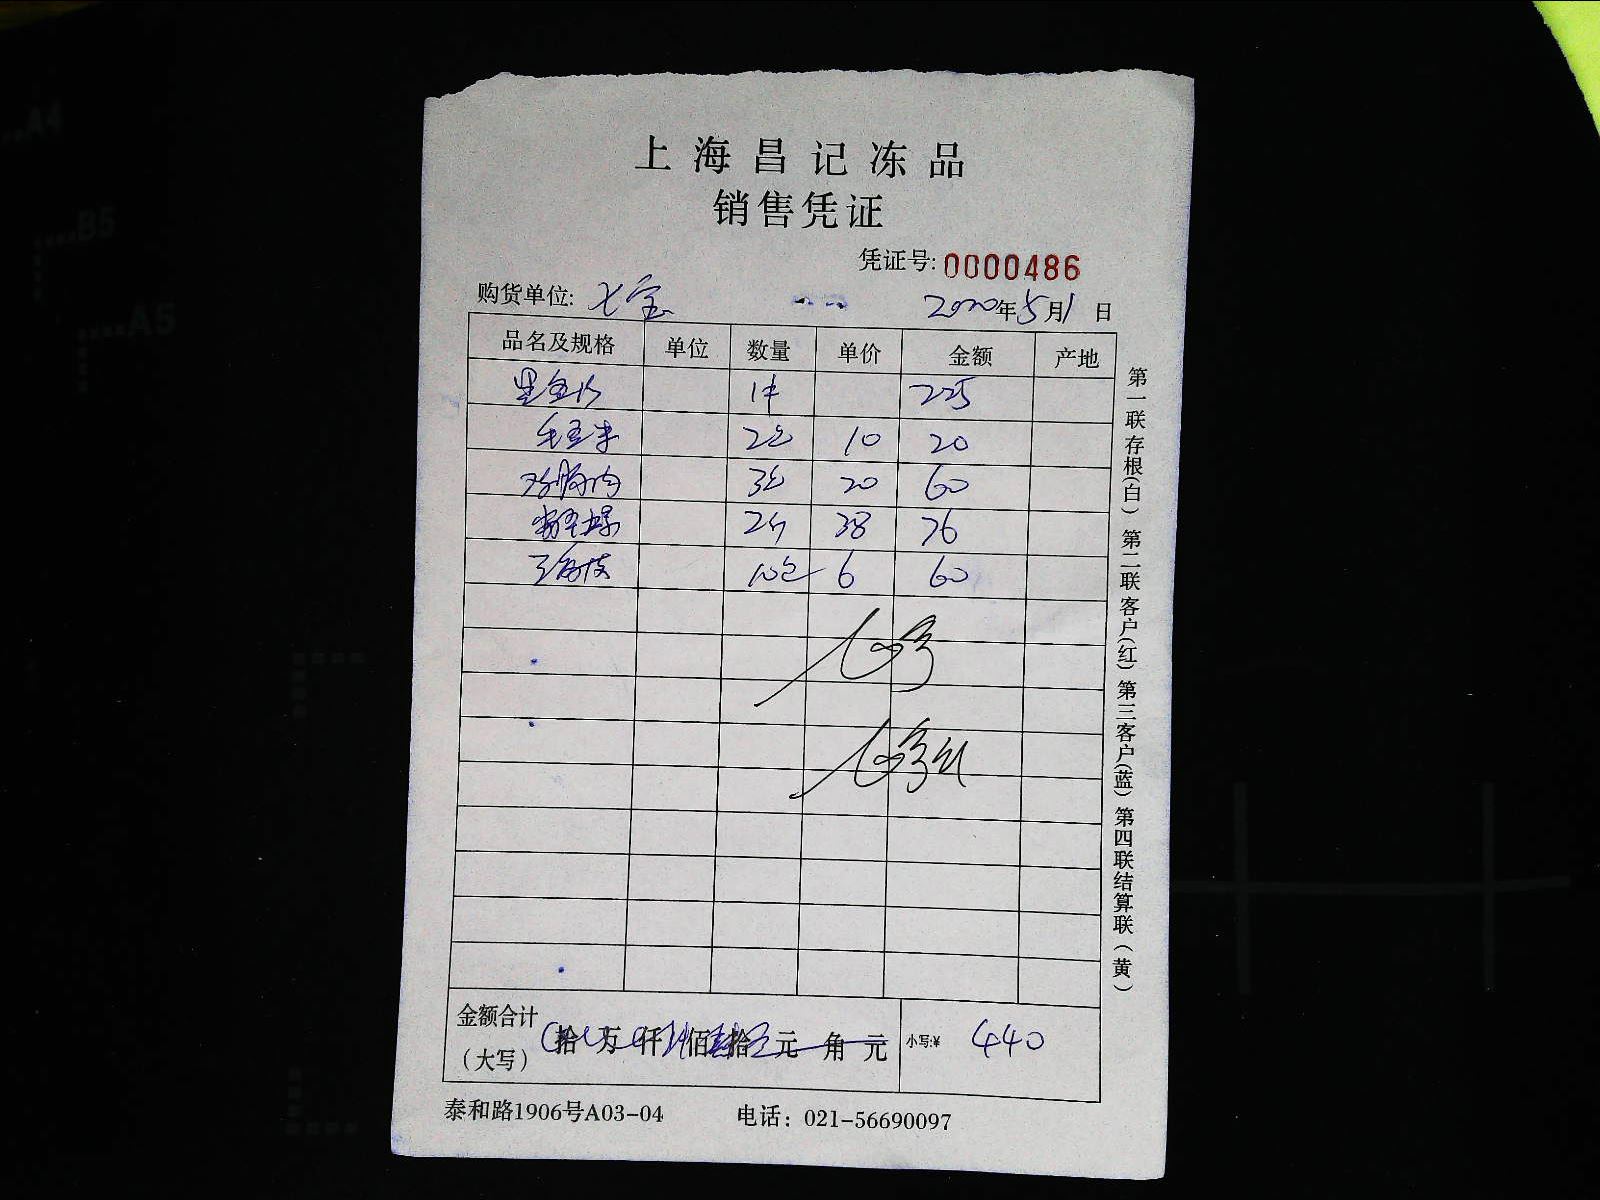 上海昌记冻品
销售凭证
凭证号: 0000486
购货单位: 七宝 2020年5月1日
品名及规格 单位 数量 单价 金额 产地
1件 225
2包 10 20
3包 20 60
2斤 38 76
10包 6 60
金额合计 拾 万 仟 佰 拾 元 角 元 小写:¥ 440
(大写)
泰和路1906号A03-04 电话: 021-56690097
第一联存根(白) 第二联客户(红) 第三客户(蓝) 第四联结算联(黄)
A4
B5
A5